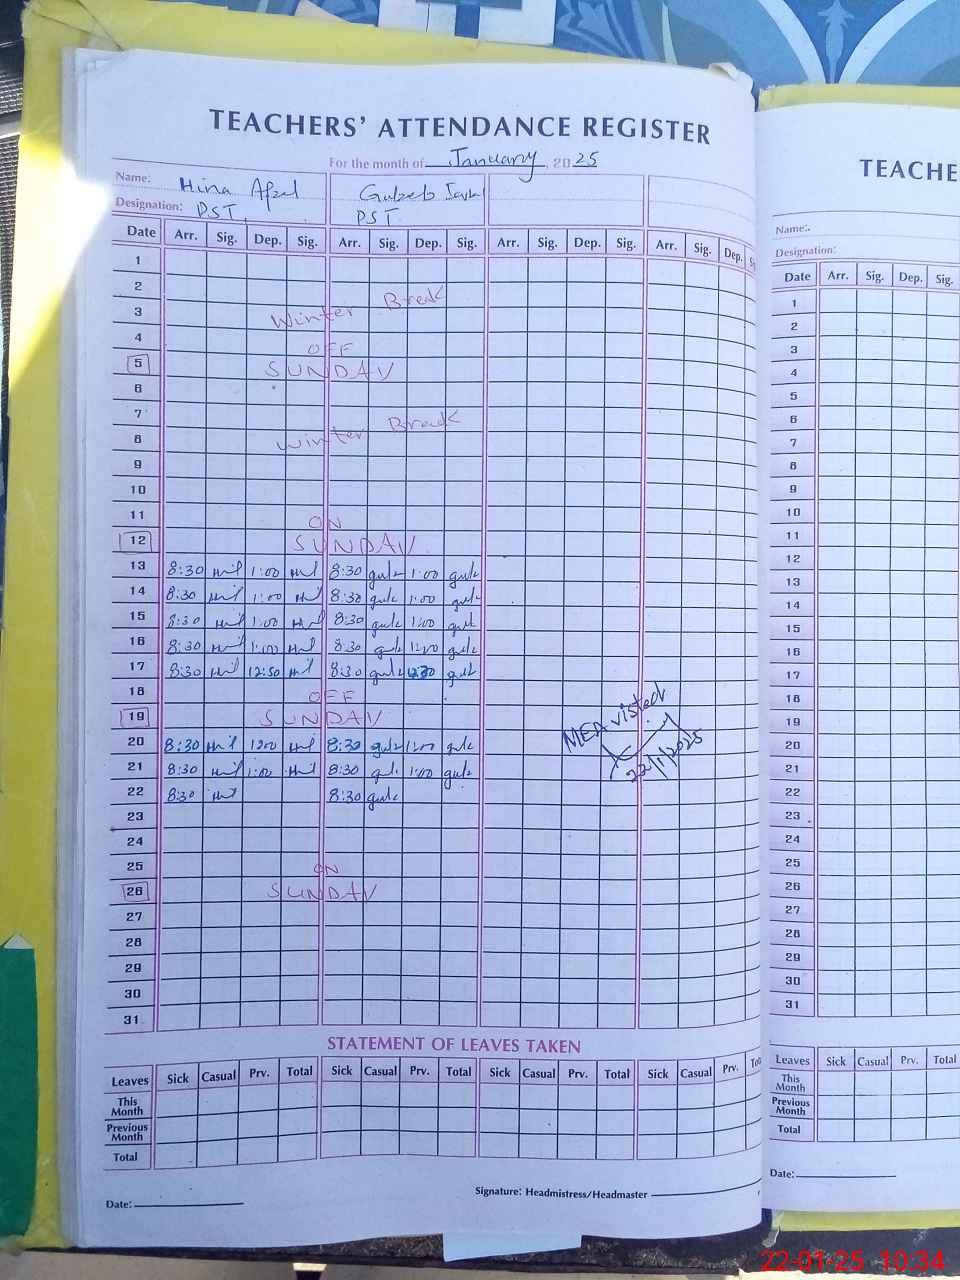 TEACHERS' ATTENDANCE REGISTER
For the month of January, 2025
Name: Hina Afzal Gulzeb
Designation: PST PST
Date Arr. Sig. Dep. Sig. Arr. Sig. Dep. Sig. Arr. Sig. Dep. Sig. Arr. Sig. Dep.
1
2
3 Winter Break
4 OFF
5 SUNDAY
6
7
8 Winter Break
9
10
11 ON
12 SUNDAY
13 8:30 1:00 8:30 1:00
14 8:30 1:00 8:30 1:00
15 8:30 1:00 8:30 1:00
16 8:30 1:00 8:30 1:00
17 8:30 12:30 8:30 12:30
18 OFF
19 SUNDAY
20 8:30 1:00 8:30 1:00
21 8:30 1:00 8:30 1:00
22 8:30 8:30
23
24
25 ON
26 SUNDAY
27
28
29
30
31
MEA visted
22/1/2025
STATEMENT OF LEAVES TAKEN
Leaves Sick Casual Prv. Total Sick Casual Prv. Total Sick Casual Prv. Total Sick Casual Prv.
This Month
Previous Month
Total
Date:
Signature: Headmistress/Headmaster
TEACHE
Name:
Designation:
Date Arr. Sig. Dep. Sig.
1
2
3
4
5
6
7
8
9
10
11
12
13
14
15
16
17
18
19
20
21
22
23
24
25
26
27
28
29
30
31
Leaves Sick Casual Prv. Total
This Month
Previous Month
Total
Date:
22-01-25 10:34